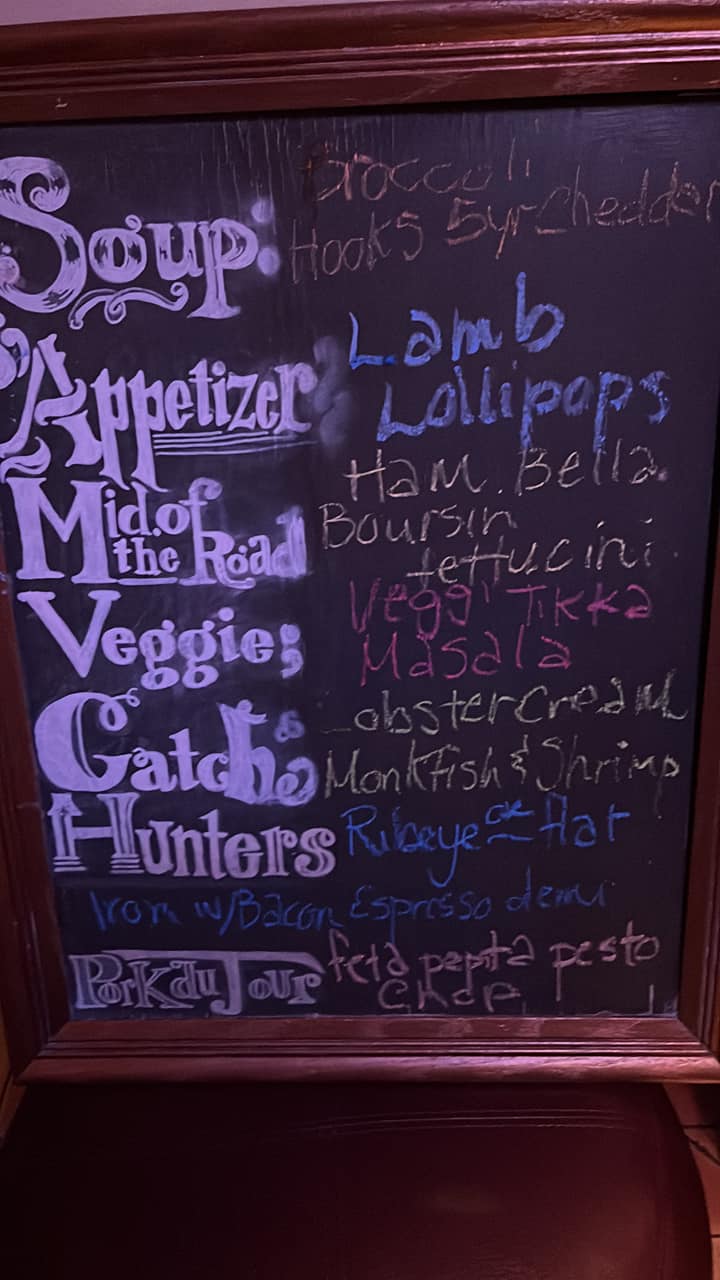 Soup: Broccoli
Hooks 5yr Chedder
Appetizer Lamb
Lollipops
Mid. of the Road Ham. Bella.
Boursin
fettucini.
Veggie: Veggi Tikka
Masala
Catch: Lobster Cream
Monkfish & Shrimp
Hunters Ribeye or flat
Iron w/Bacon Espresso demi
Pork du Jour feta pepita pesto
Chop